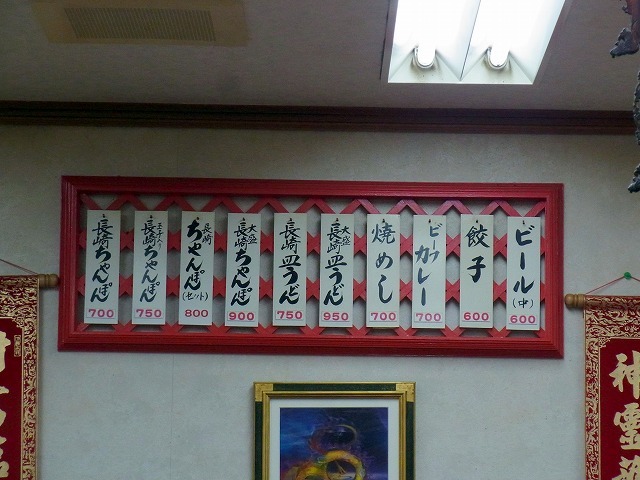 長崎ちゃんぽん
700
玉子入り
長崎ちゃんぽん
750
長崎
ちゃんぽん
(セット)
800
大盛
長崎ちゃんぽん
900
長崎皿うどん
750
大盛
長崎皿うどん
950
焼めし
700
ビーフ
カレー
700
餃子
600
ビール(中)
600
神靈